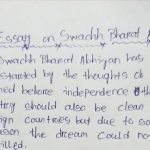 Essay on Swachh Bharat A
Swachh Bharat Abhiyan has
started by the thoughts of
med before independence th
try should also be clean
ign countries but due to so
ason the dream could no
illed.